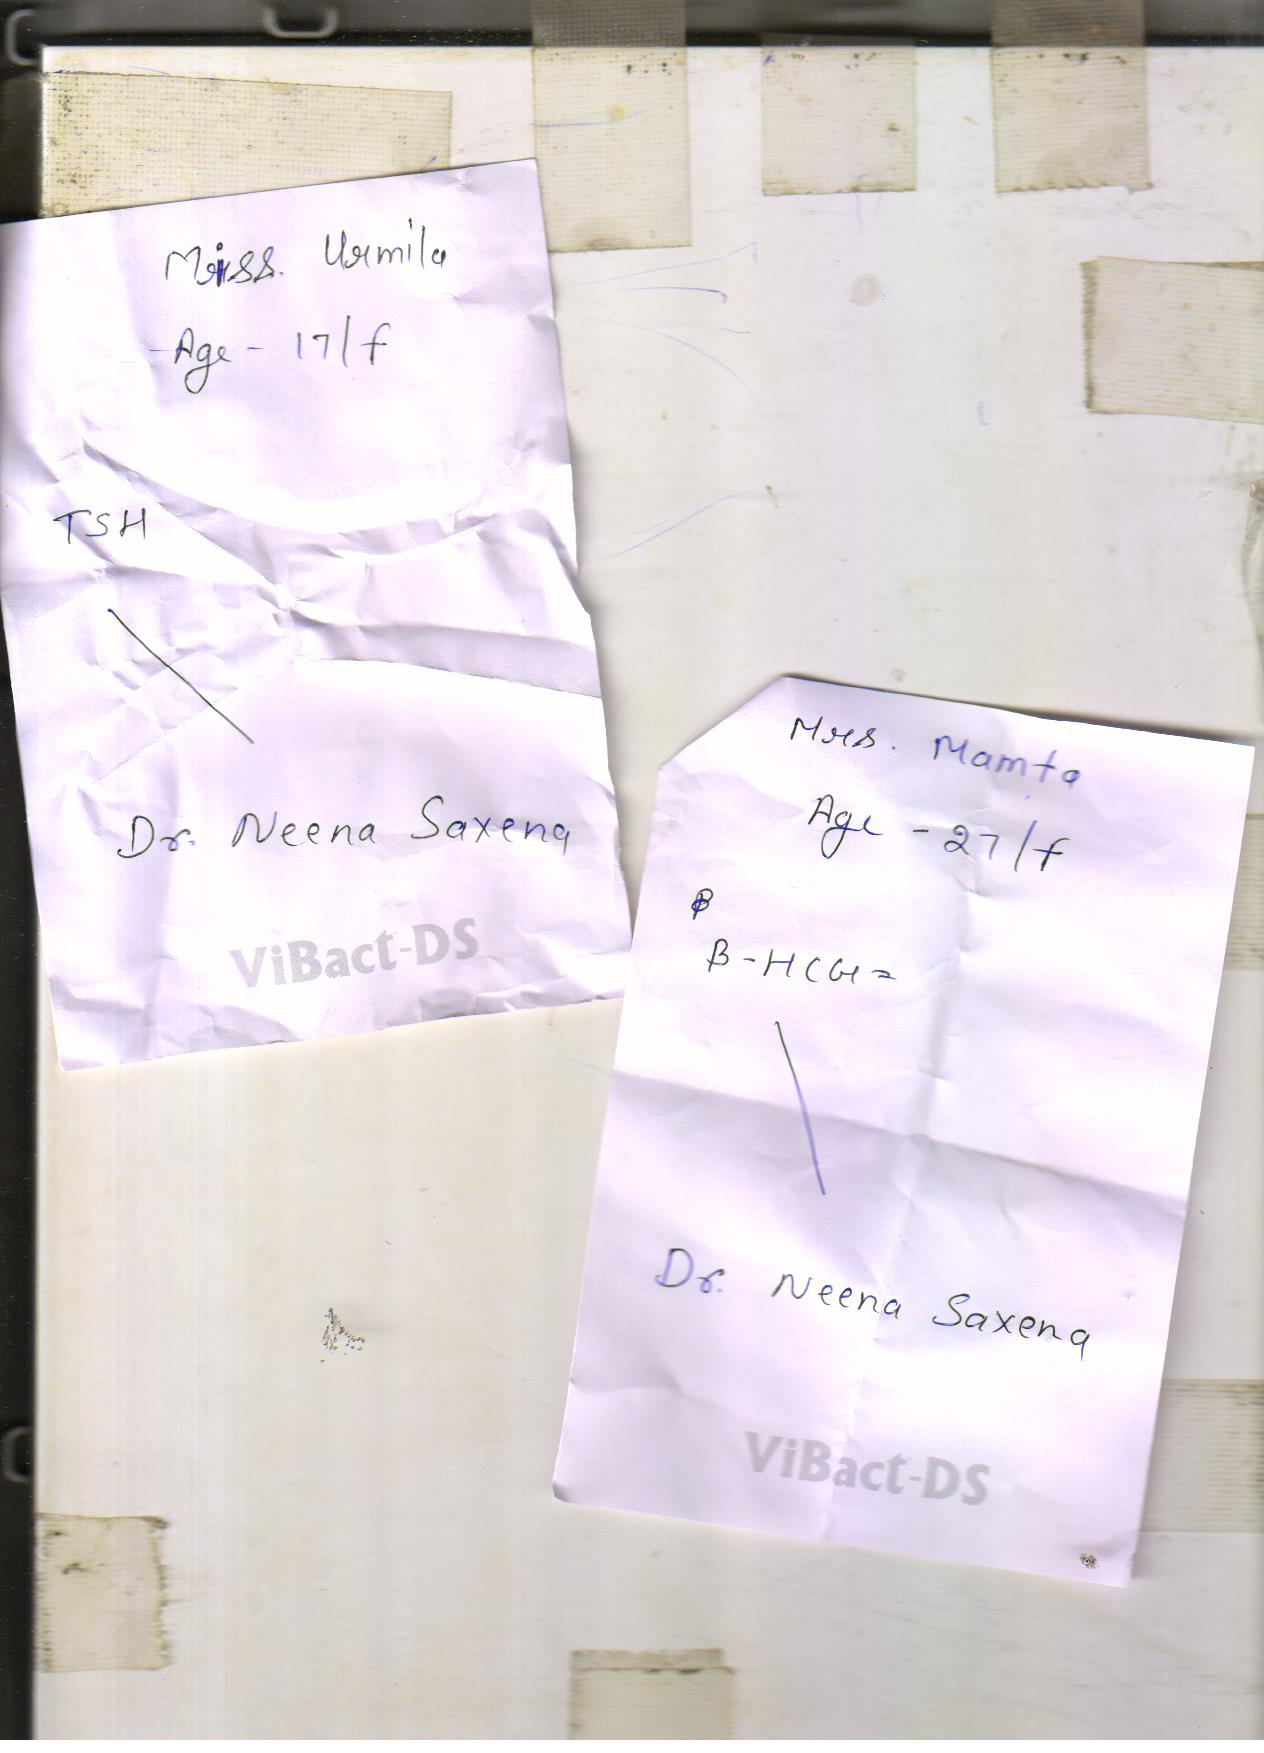 Miss. Urmila
Age - 17/f
TSH
Dr. Neena Saxena
ViBact-DS
Mrs. Mamta
Age - 27/f
β
β-HCG=
Dr. Neena Saxena
ViBact-DS